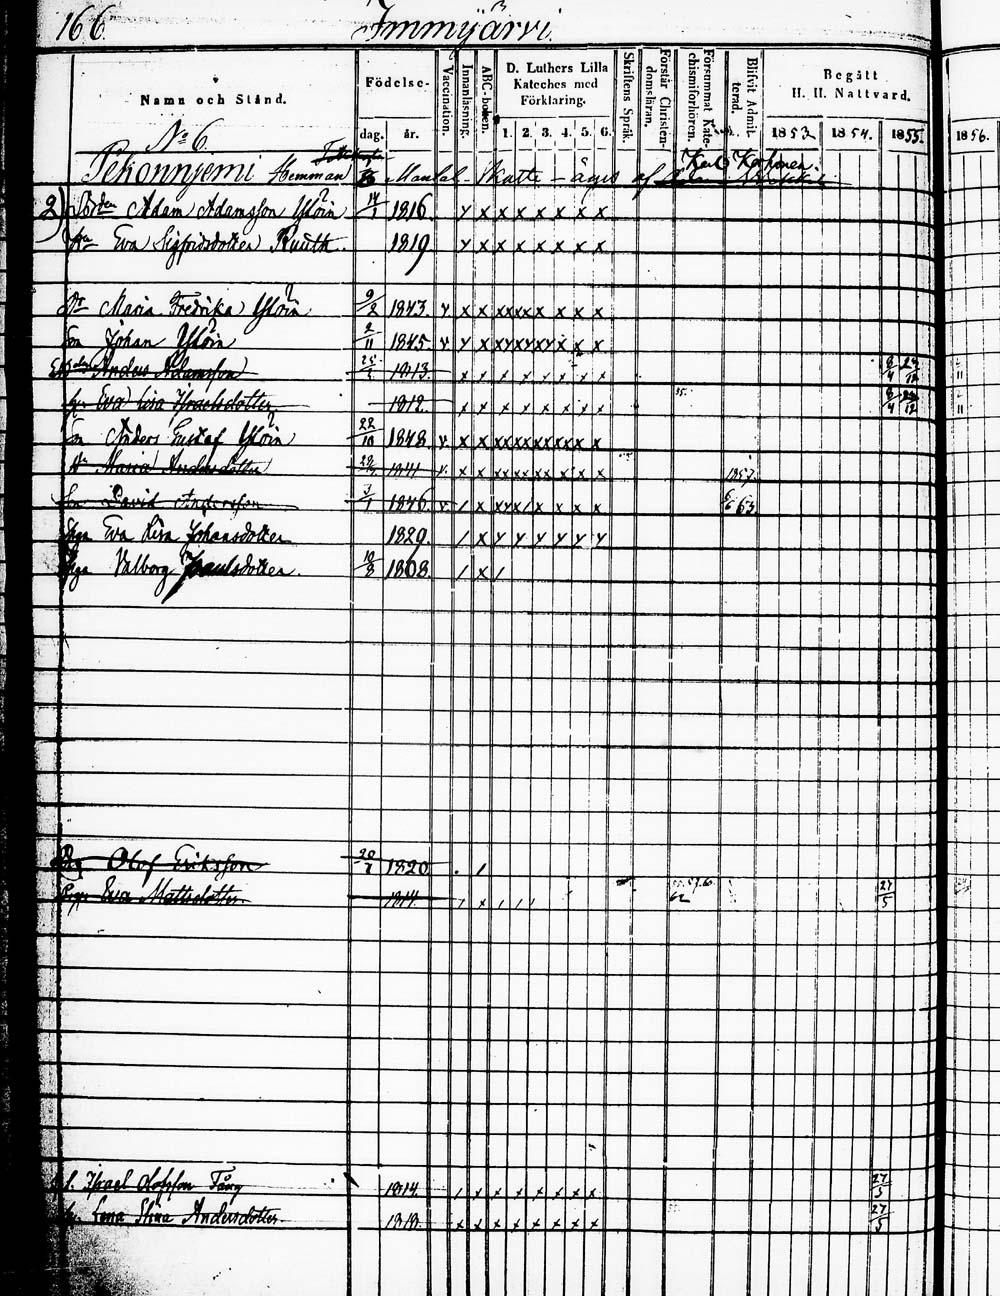 166
Immyjärvi
Namn och Stånd.
Födelse-
dag. år.
Vaccination.
Innanläsning.
ABC-boken.
D. Luthers Lilla Kateches med Förklaring.
1. 2. 3. 4. 5. 6.
Skriftens Språk.
Förstår Christendomsläran.
Försummat Katechismiförhören.
Blifvit Admitterad.
Begått H. H. Nattvard.
1853. 1854. 1855. 1856.
No 6.
Pekonnjemi Hemman Mantal Skatte - äges af Karl Korhonen
2) Adam Adamsson Ylöin 1816 y x x x x x x x
Eva Sigfridsdotter Ruuth. 1819 y x x x x x x x
Maria Fredrika Ylöin 9/2 1843 v x x xx xx x x x x
Son Johan Ylöin 2/11 1845 v y x xy xy xy x x x
Anders Adamsson 1813 x x x x x x x x 8/4 23/12
hu Eva Lisa Israelsdotter 1812 x x x x x x x x 8/4 23/12
Son Anders Gustaf Ylöin 22/10 1848 v x x xx xx xx xx x x
Maria Andersdotter 1841 v. x x xx xx xx x x x 1857.
Son David Andersson 3/1 1846 v / x xy x/ x x x x 63
Eva Lisa Johansdotter 1829 / x y y y y y y
Valborg Paulsdotter. 10/8 1808 / x /
Olof Eriksson 20/7 1820 . /
Eva Mattsdotter 1814 / x / / / 62 27/5
Israel Olofsson Tång 1814 / x x x x x x x 27/5
Lena Stina Andersdotter. 1818 x x x x x x x x 27/5